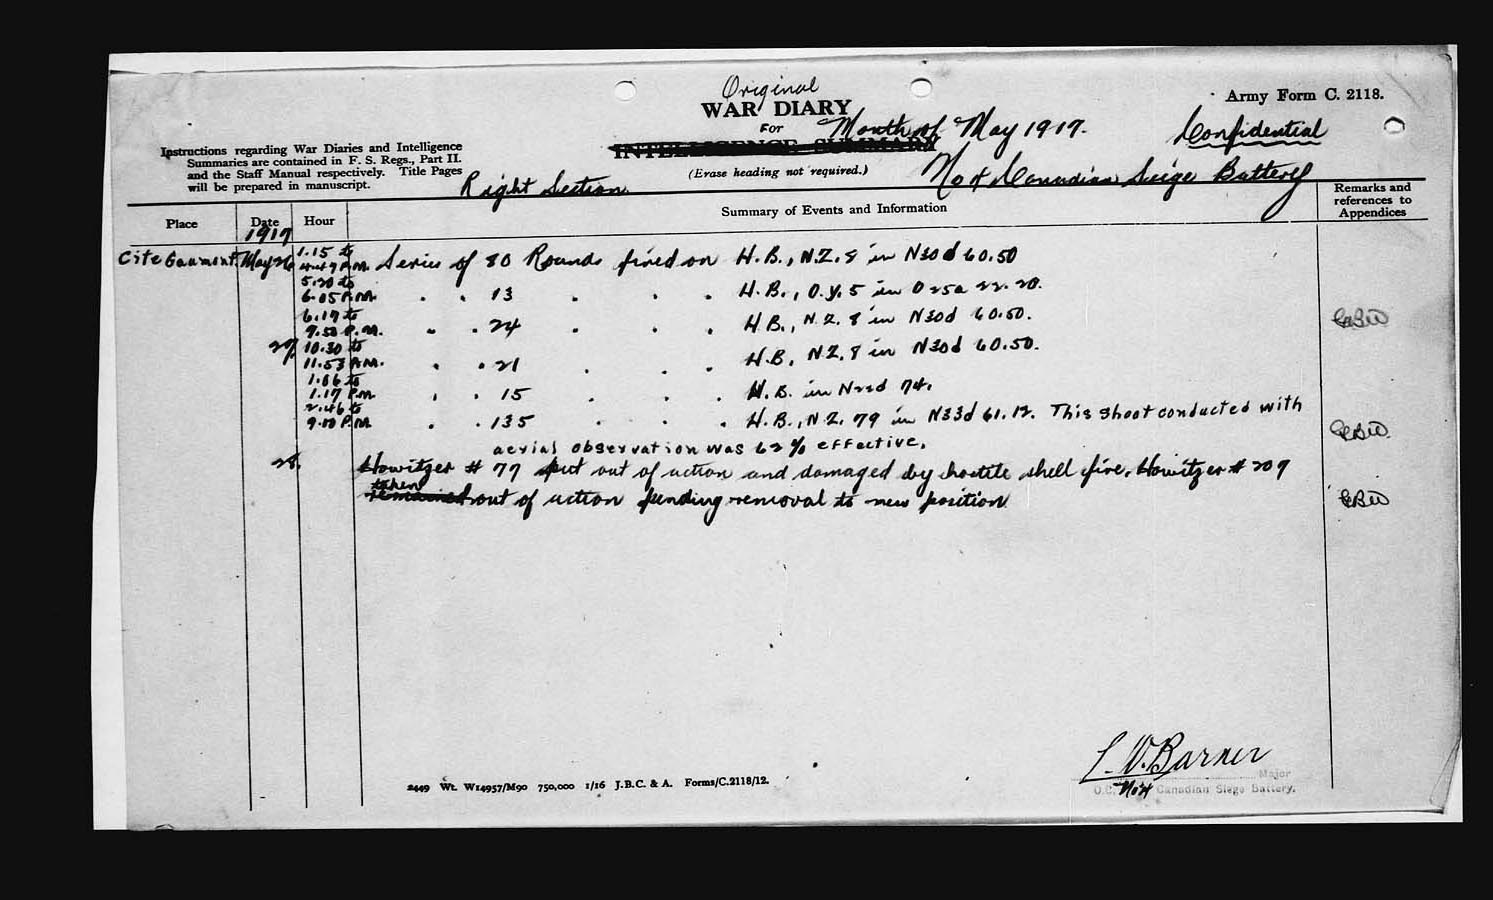 Original
WAR DIARY
Army Form C. 2118.
For Month of May 1917.
Confidential
INTELLIGENCE SUMMARY
Instructions regarding War Diaries and Intelligence
Summaries are contained in F. S. Regs., Part II.
and the Staff Manual respectively. Title Pages
will be prepared in manuscript.
(Erase heading not required.)
Right Section
No 4 Canadian Seige Battery
Place Date Hour Summary of Events and Information Remarks and references to Appendices
1917
Cite Gaumont May 26 1.15 to
4.47 P.M. Series of 80 Rounds fired on H.B., N.Z. 8 in N30d 60.50
5.20 to
6.05 P.M. . . 13 . . . H.B., O.Y. 5 in O25a 22.20.
6.17 to
9.50 P.M. . . 24 . . . H.B., N.Z. 8 in N30d 60.50.
27. 10.30 to
11.53 A.M. . . 21 . . . H.B., N.Z. 8 in N30d 60.50.
1.06 to
1.17 P.M. . . 15 . . . H.B. in N22d 74.
2.46 to
P.M. . . 135 . . . H.B., N.Z. 79 in N33d 61.12. This shoot conducted with
aerial observation was 62% effective.
28. Howitzer # 77 put out of action and damaged by hostile shell fire. Howitzer # 209
taken
remained out of action pending removal to new position
2449 Wt. W14957/M90 750,000 1/16 J.B.C. & A. Forms/C.2118/12.
L.W. Barker
Major
O.C. No 4 Canadian Siege Battery.